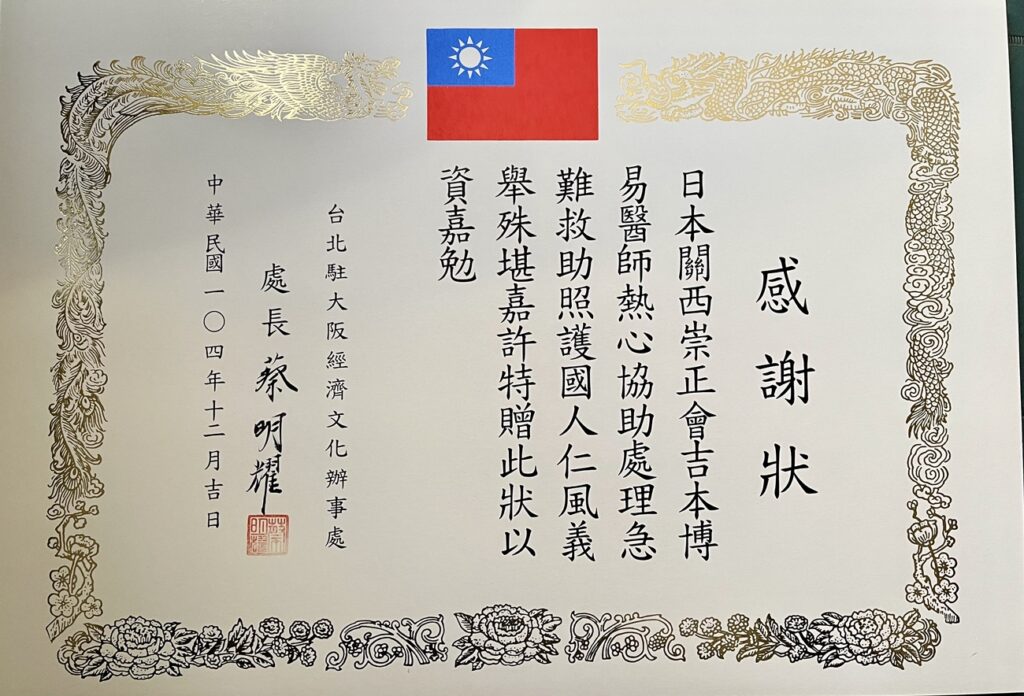 感謝狀
日本關西崇正會吉本博
易醫師熱心協助處理急
難救助照護國人仁風義
舉殊堪嘉許特贈此狀以
資嘉勉
台北駐大阪經濟文化辦事處
處長蔡明耀
中華民國一〇四年十二月吉日